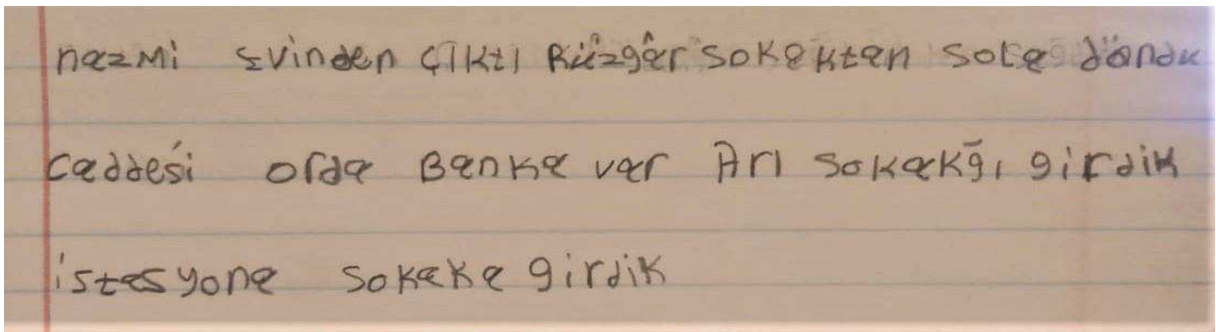 nazmi Evinden çıktı Rüzgâr sokaktan sola döndü
caddesi orda Banka var Arı sokakğı girdik
istasyona sokaka girdik